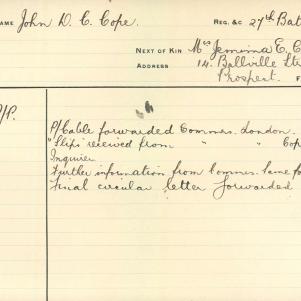 NAME John D. C. Cope. REG. &C 27th Bat
NEXT OF KIN Mrs Jemima E. C
ADDRESS 14. Ballville Str
Prospect. F
P/Cable forwarded Commrs. London.
"Slips" received from " " Cop
Inquirer
Further information from Commrs. same fo
Final circular letter forwarded